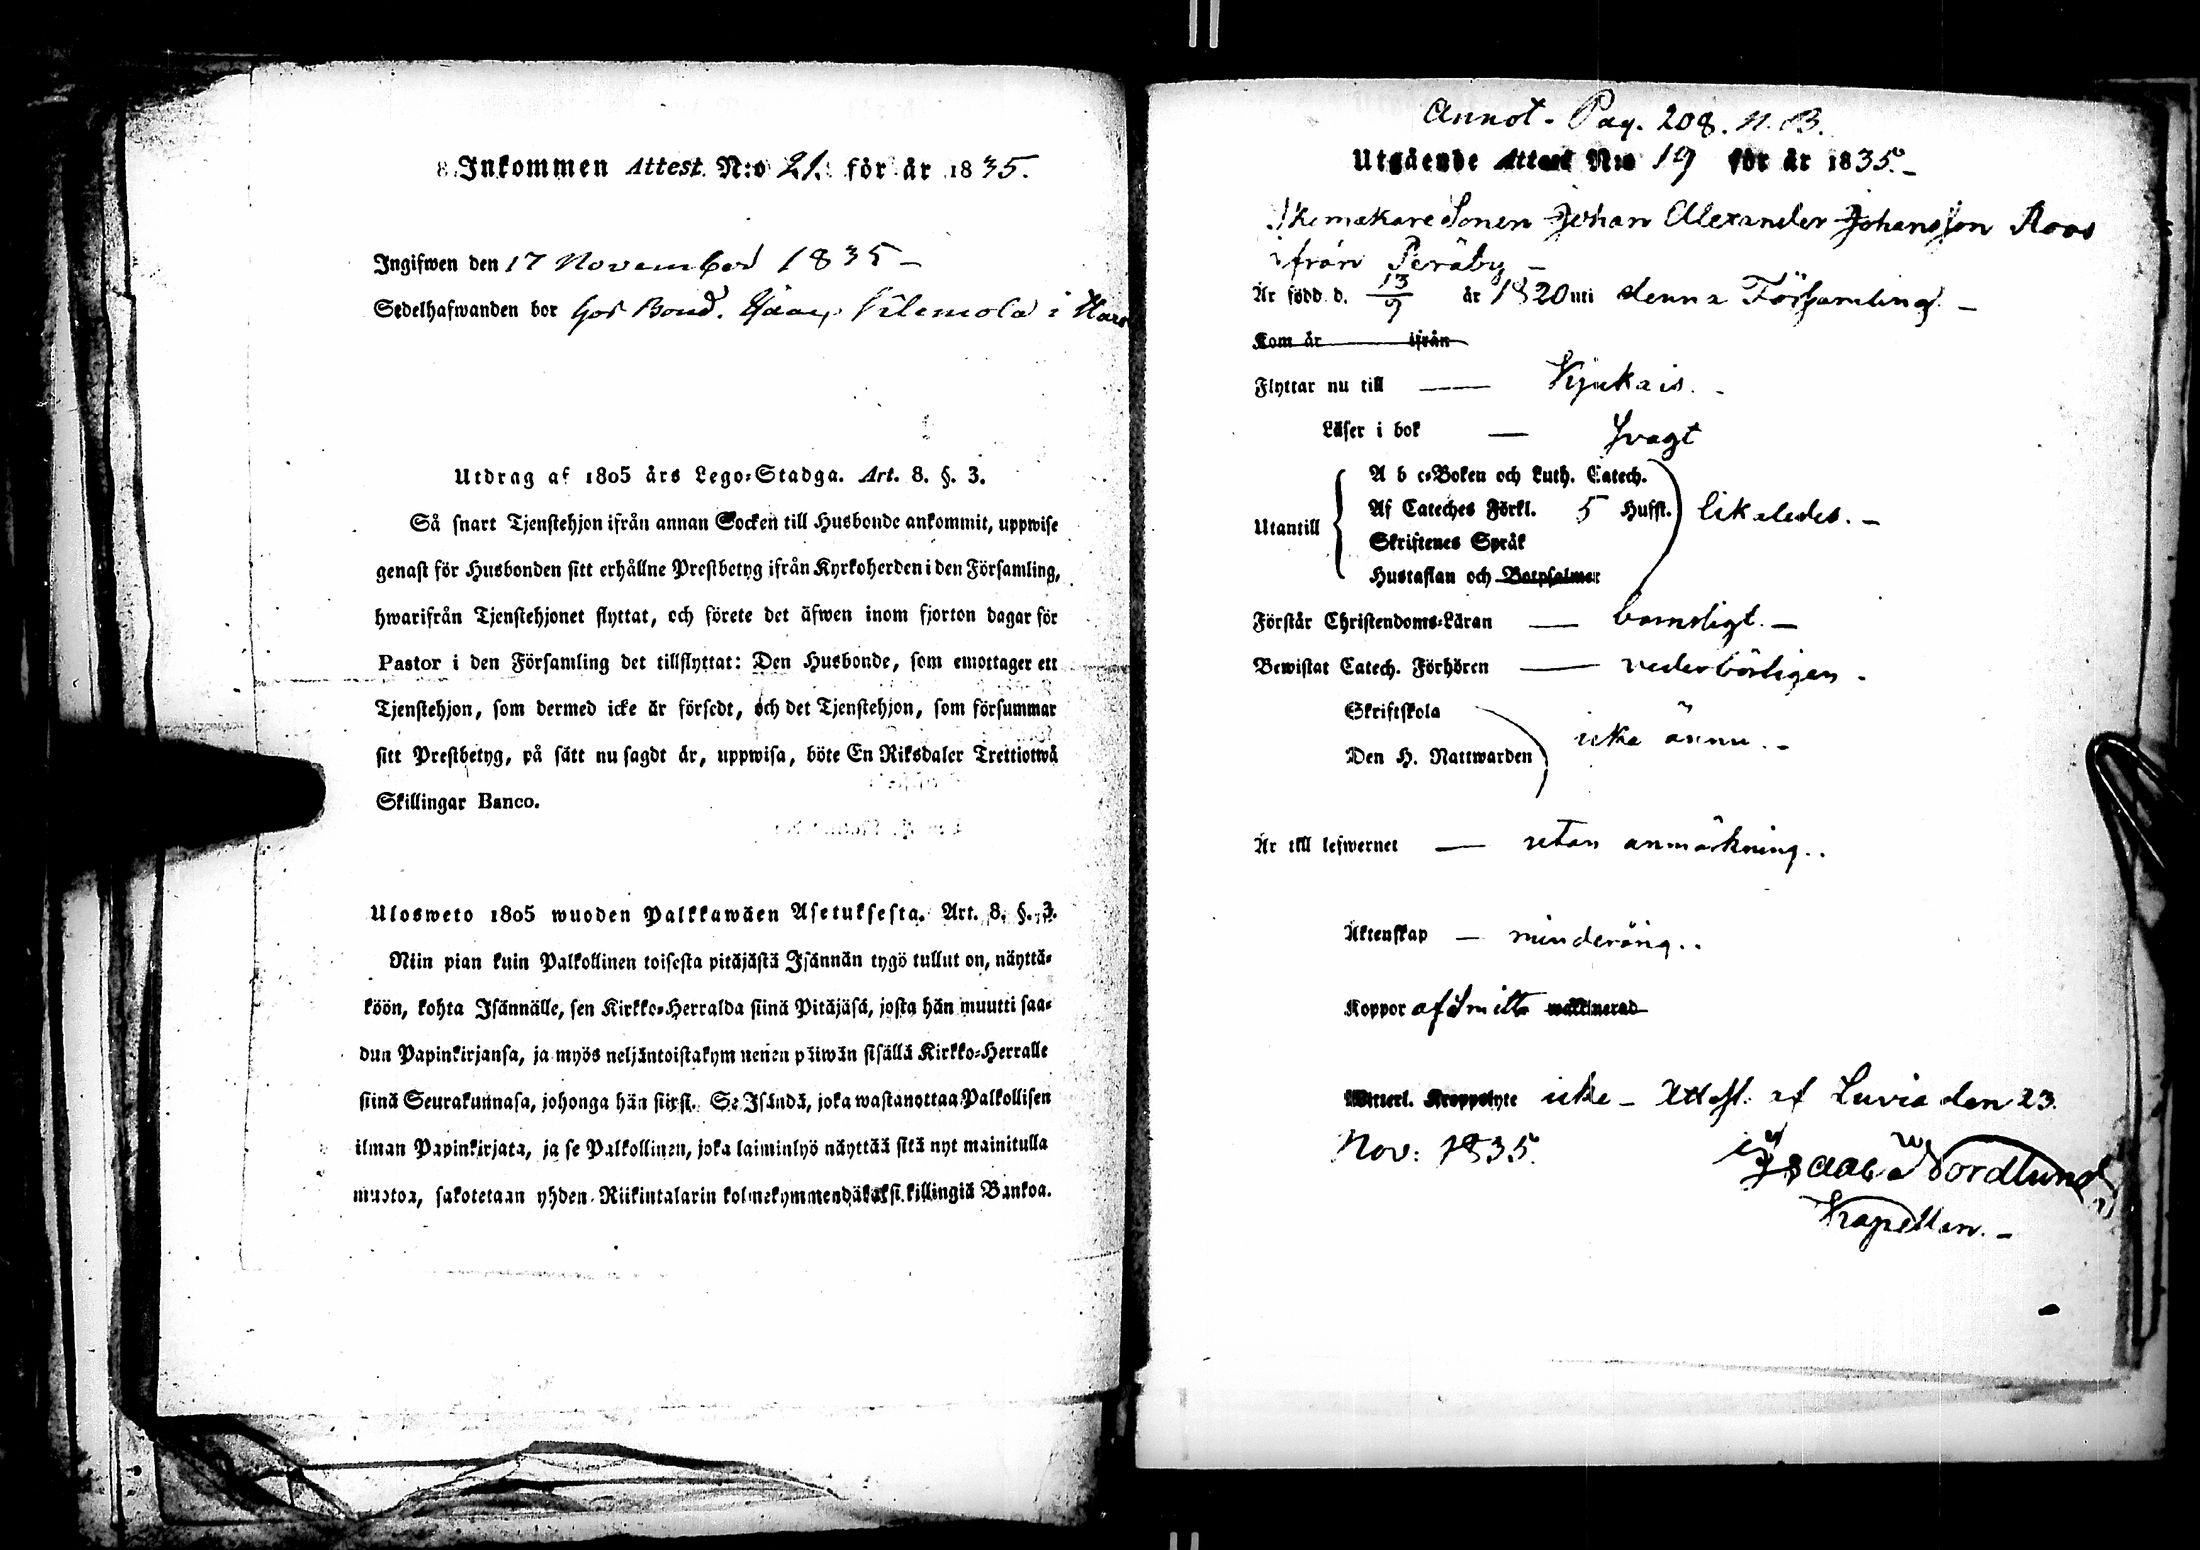 Inkommen Attest. N:o 21. för år 1835.
Ingifwen den 17 November 1835 –
Sedelhafwanden bor hos Bond. i
Utdrag af 1805 års Lego=Stadga. Art. 8. §. 3.
Så snart Tjenstehjon ifrån annan Socken till Husbonde ankommit, uppwise
genast för Husbonden sitt erhållne Prestbetyg ifrån Kyrkoherden i den Församling,
hwarifrån Tjenstehjonet flyttat, och förete det äfwen inom fjorton dagar för
Pastor i den Församling det tillflyttat: Den Husbonde, som emottager ett
Tjenstehjon, som dermed icke är försedt, och det Tjenstehjon, som försummar
sitt Prestbetyg, på sätt nu sagdt är, uppwisa, böte En Riksdaler Trettiotwå
Skillingar Banco.
Ulosweto 1805 wuoden Palkkawäen Asetuksesta. Art. 8. §. 3.
Niin pian kuin Palkollinen toisesta pitäjästä Isännän tygö tullut on, näyttä=
köön, kohta Isännälle, sen Kirkko=Herralda siinä Pitäjäsä, josta hän muutti saa=
dun Papinkirjansa, ja myös neljäntoistakymmenen päiwän sisällä Kirkko=Herralle
siinä Seurakunnasa, johonga hän siirsi. Se Isändä, joka wastanottaa Palkollisen
ilman Papinkirjata, ja se Palkollinen, joka laiminlyö näyttää sitä nyt mainitulla
muotoa, sakotetaan yhden Riikintalarin kolmekymmendäkaksi killingiä Bankoa.
Annot. Pag. 208. N. B.
Utgående Attest N:o 19 för år 1835. –
Skomakare Sonen Johan Alexander Johansson Roos
ifrån Peräby –
Är född d. 13/9 år 1820 uti denna Församling. –
Kom år ifrån
Flyttar nu till — Kjukais. –
Läser i bok — svagt
Utantill
A b c=Boken och Luth. Catech.
Af Cateches Förkl. 5 Hufst. likaledes. –
Skriftenes Språk
Hustaflan och Botpsalmer
Förstår Christendoms=Läran — barnsligt. –
Bewistat Catech. Förhören — vederbörligen –
Skriftskola
Den H. Nattwarden icke ännu. –
Är till lefwernet — utan anmärkning..
Äktenskap — minderårig..
Koppor afsmitta wakkinerad
Witterl. Kroppslyte icke – Attest. af Luvia den 23.
Nov: 1835.
Isaac W Nordlund
Kapellan. –